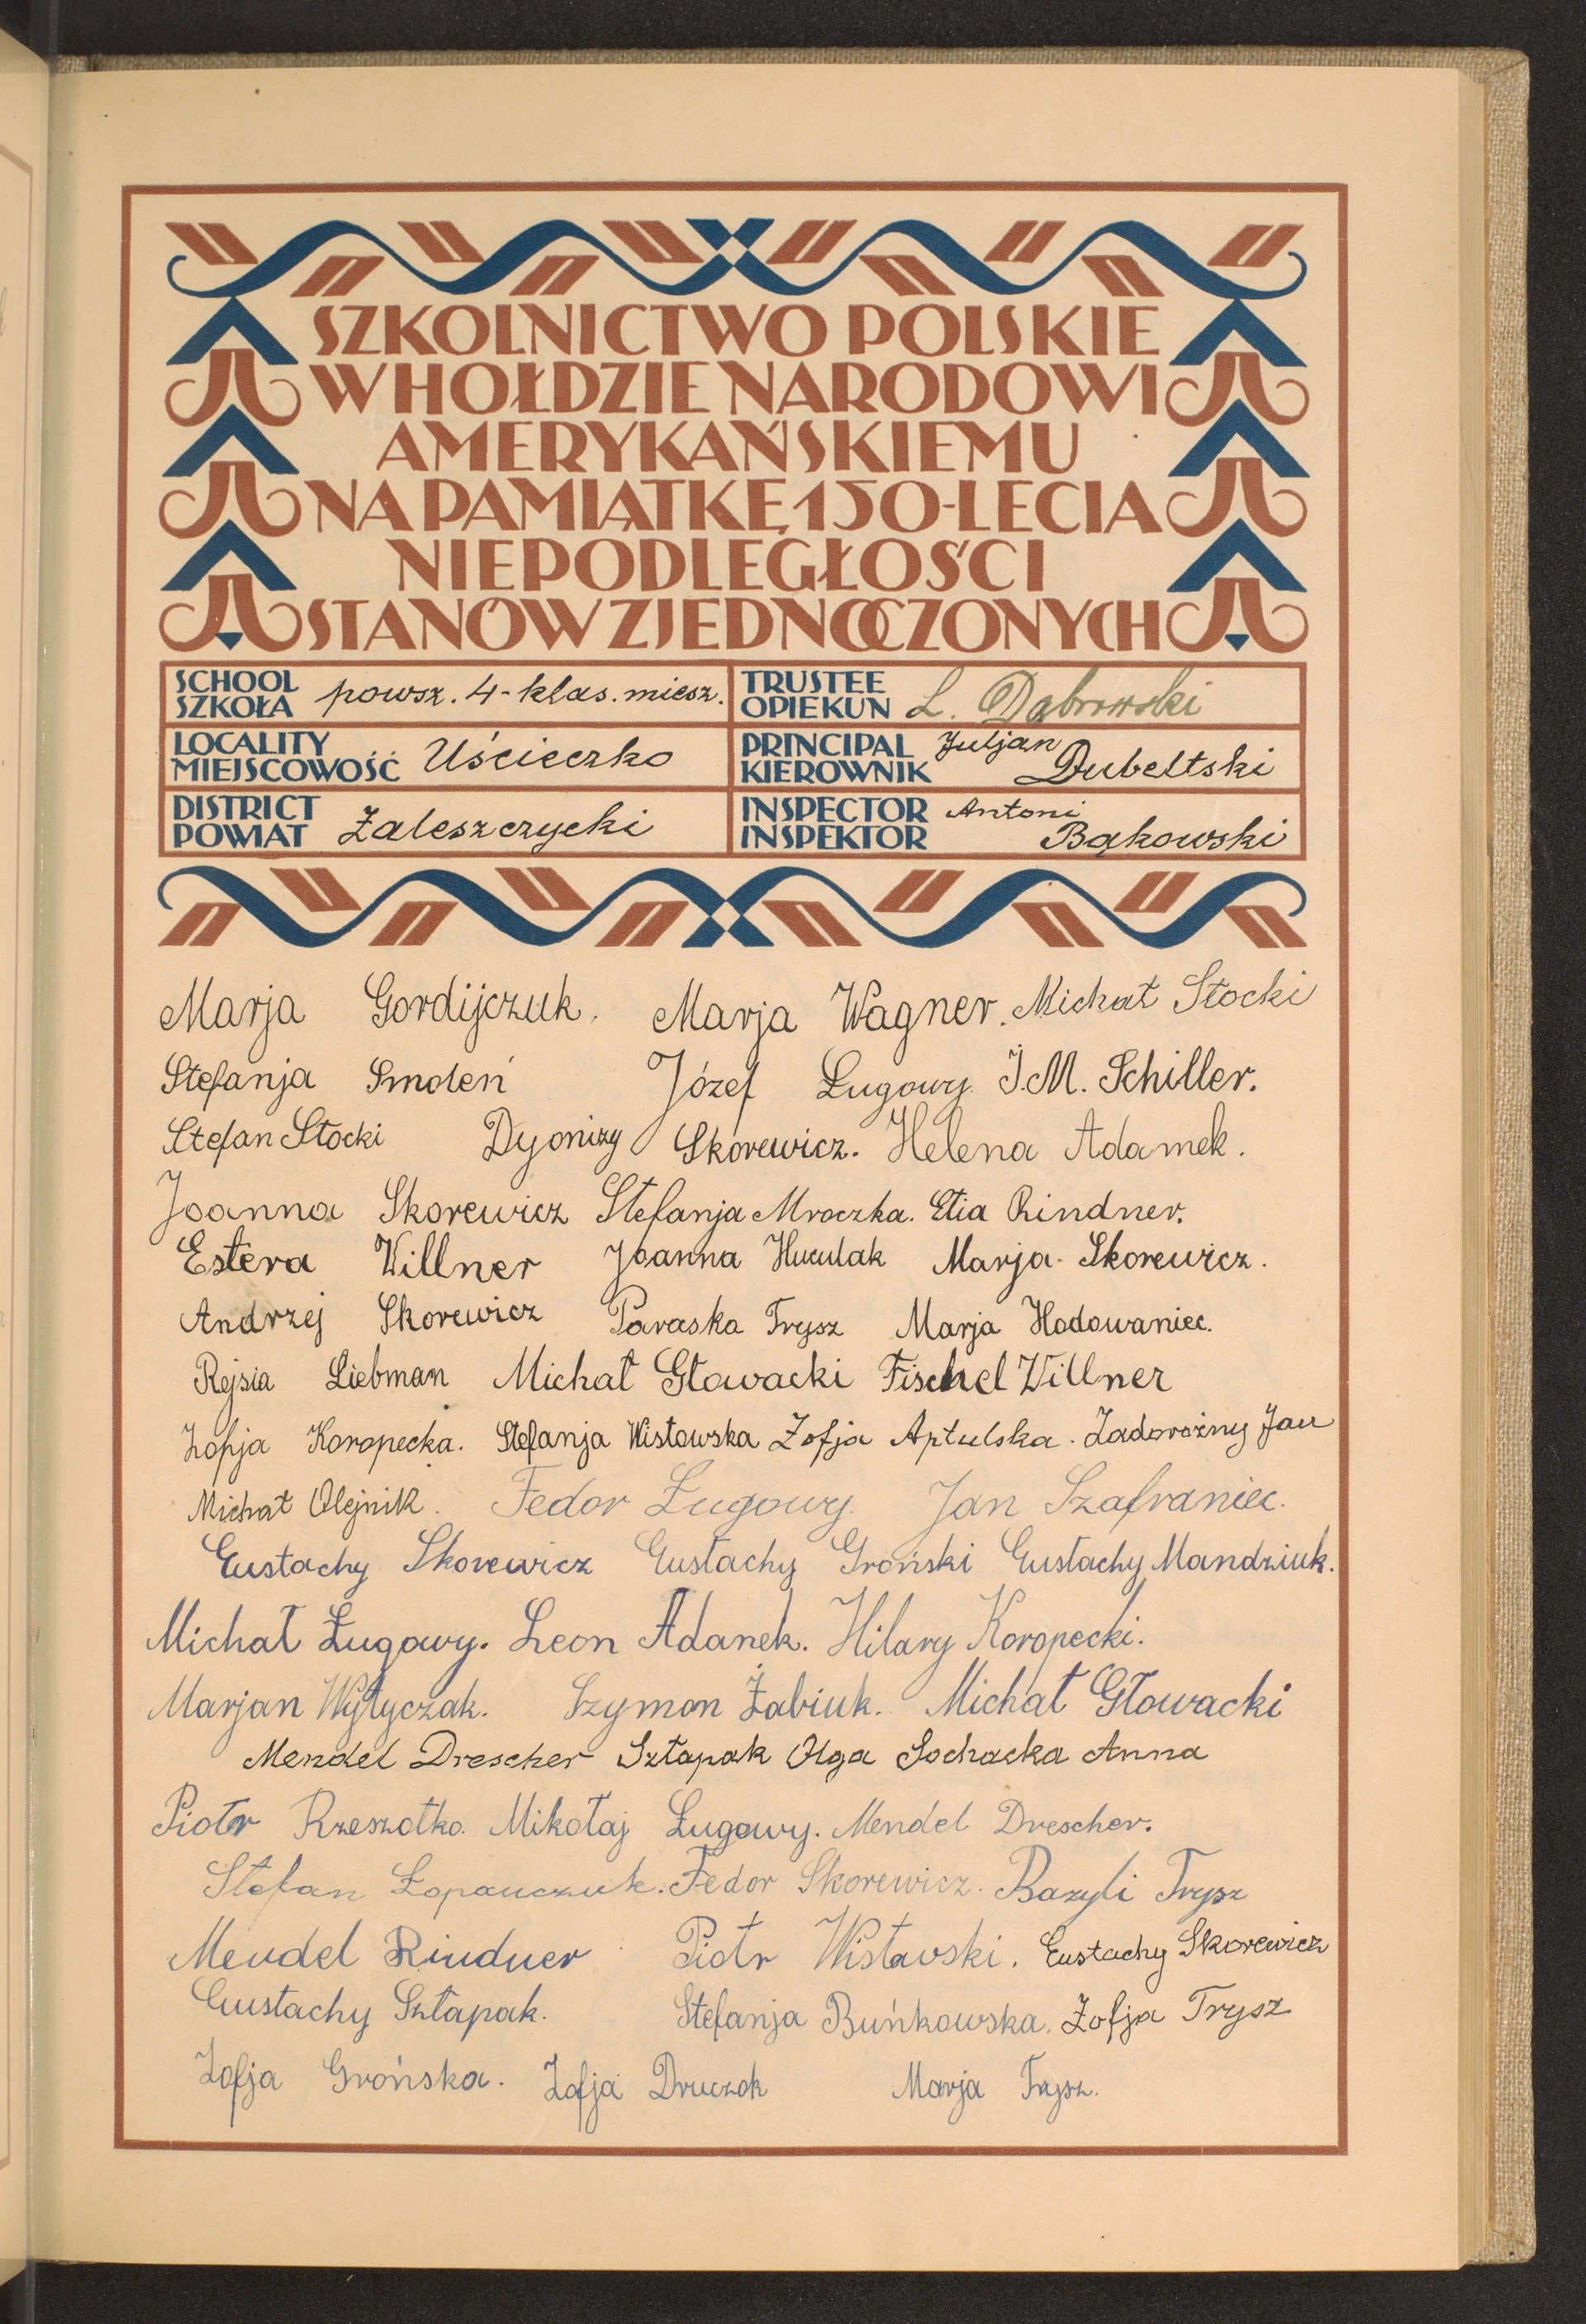 SZKOLNICTWO POLSKIE
W HOŁDZIE NARODOWI
AMERYKAŃSKIEMU
NA PAMIĄTKĘ 150-LECIA
NIEPODLEGŁOŚCI
STANÓW ZJEDNOCZONYCH
SCHOOL
SZKOŁA powsz. 4-klas. miesz.
TRUSTEE
OPIEKUN L. Dąbrowski
LOCALITY
MIEJSCOWOŚĆ Uścieczko
PRINCIPAL Juljan
KIEROWNIK Dubeltski
DISTRICT
POWIAT Zaleszczycki
INSPECTOR Antoni
INSPEKTOR Bąkowski
Marja Gordijczuk. Marja Wagner. Michał Stocki
Stefanja Smoleń Józef Ługowy. J.M. Schiller.
Stefan Stocki Dyonizy Skórewicz. Helena Adamek.
Joanna Skorewicz Stefanja Mroczka. Etia Rindner.
Estera Willner Joanna Huculak Marja Skorewicz.
Andrzej Skorewicz Paraska Trysz Marja Hodowaniec.
Rejsia Liebman Michał Głowacki Fischel Willner
Zofja Koropecka. Stefanja Wisłowska Zofja Aptulska. Zadorożny Jan
Michał Olejnik. Fedor Ługowy. Jan Szafraniec.
Eustachy Skorewicz Eustachy Groński Eustachy Mandziuk.
Michał Ługowy. Leon Adanek. Hilary Koropecki.
Marjan Wytyczak. Szymon Żabiuk. Michał Głowacki
Mendel Drescher Sztapak Olga Sochacka Anna
Piotr Rzeszotko. Mikołaj Ługowy. Mendel Drescher.
Stefan Łopauczuk. Fedor Skorewicz. Bazyli Trysz
Mendel Rindner Piotr Wisławski. Eustachy Skorewicz
Eustachy Sztapak. Stefanja Buńkowska. Zofja Trysz
Zofja Grońska. Zofja Druczok Marja Trysz.